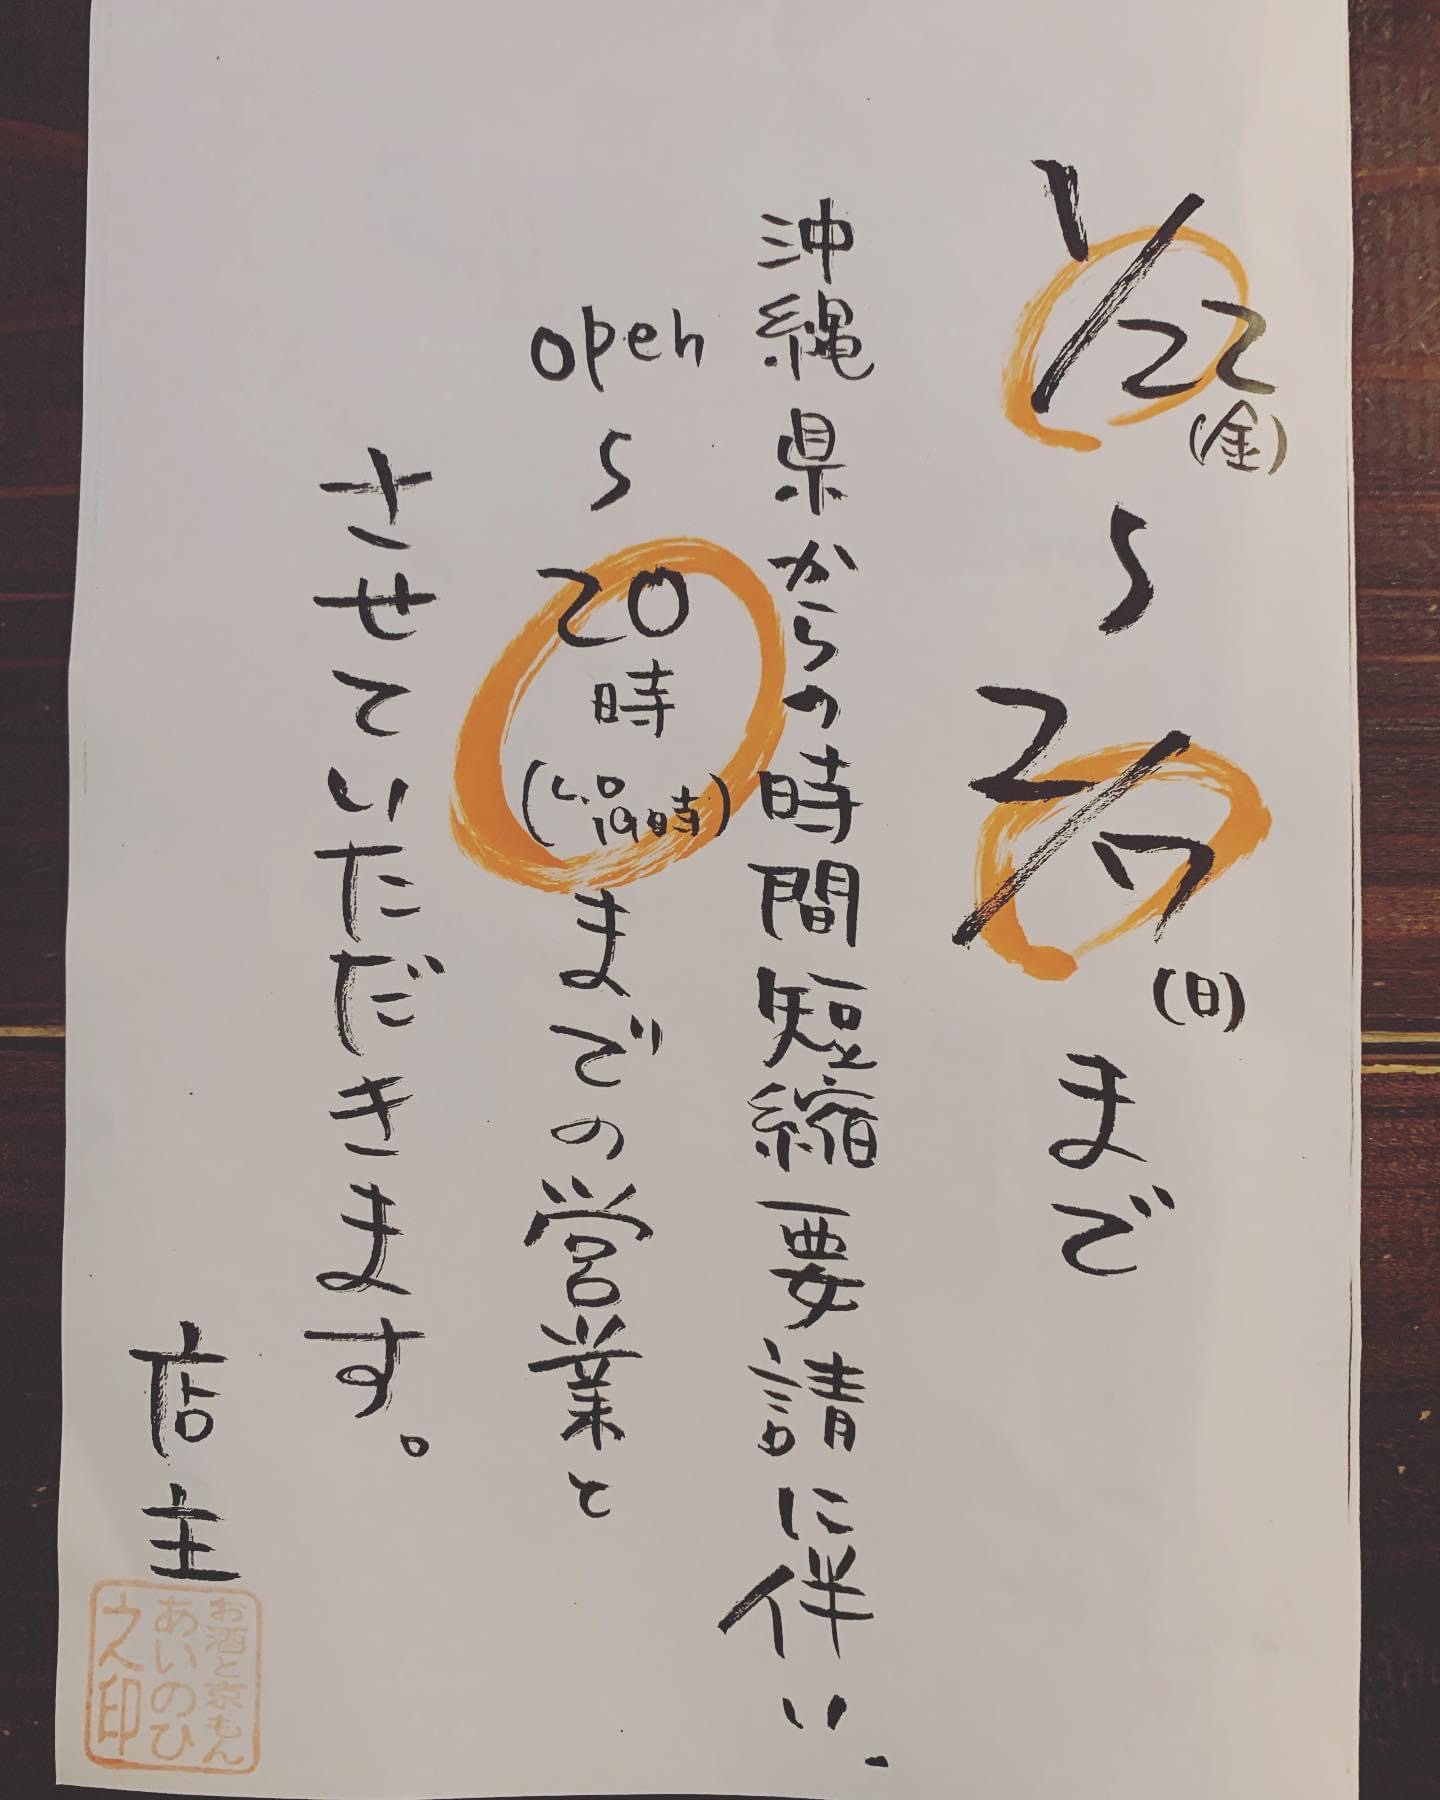 1/22(金)〜2/7(日)まで
沖縄県からの時間短縮要請に伴い、
open〜20時(L.O19時)までの営業と
させていただきます。
店主
お酒と京もん
あいのひ
之印